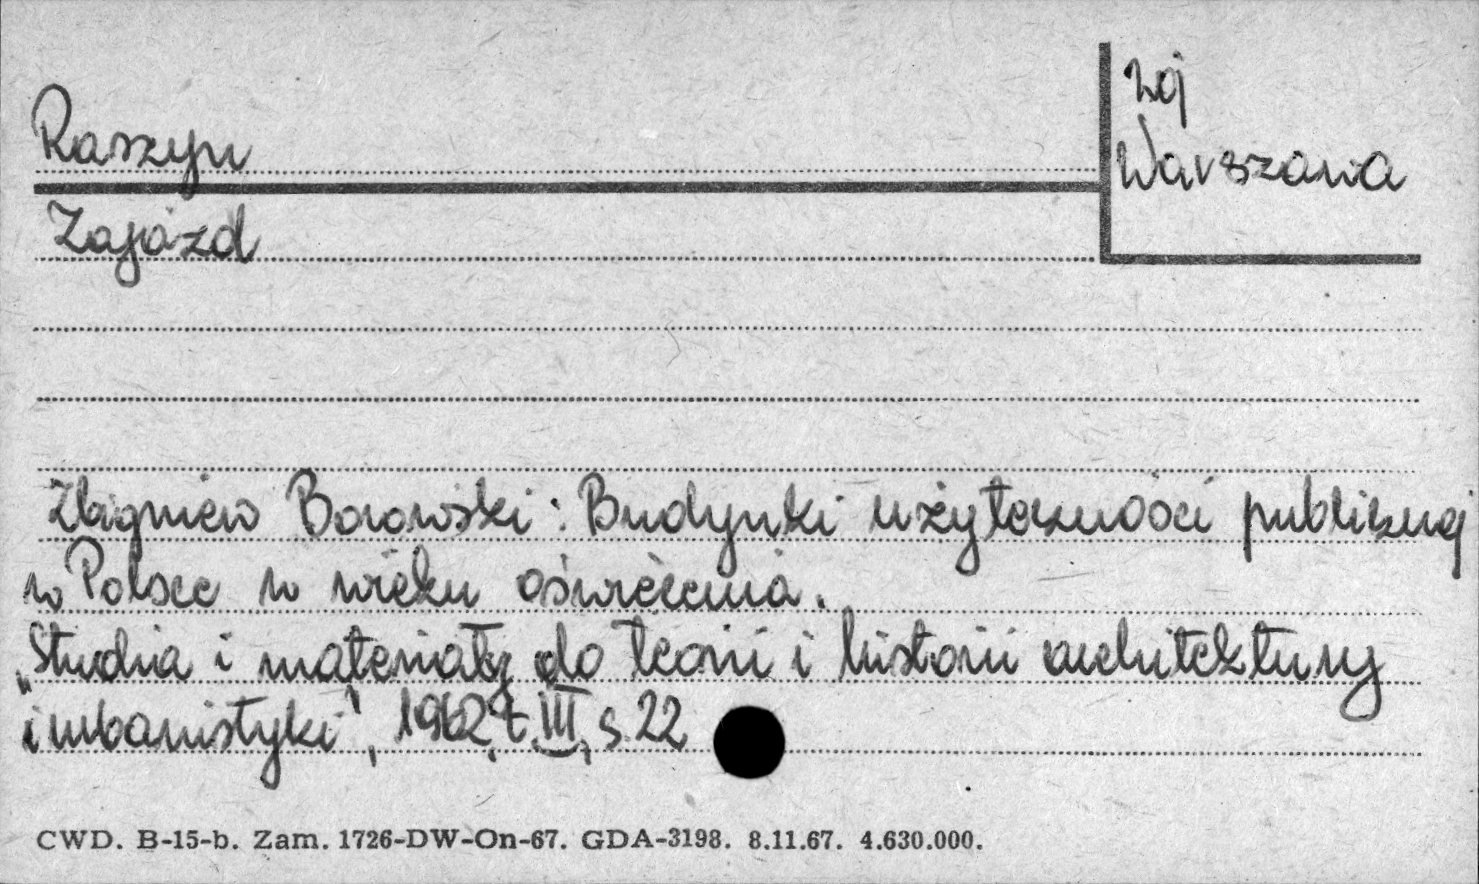 Raszyn
woj
Warszawa
Zajazd
Zbigniew Borowski: Budynki użyteczności publicznej
w Polsce w wieku oświecenia.
„Studia i materiały do teorii i historii architektury
i urbanistyki", 1962, t. III, s. 22
CWD. B-15-b. Zam. 1726-DW-On-67. GDA-3198. 8.11.67. 4.630.000.